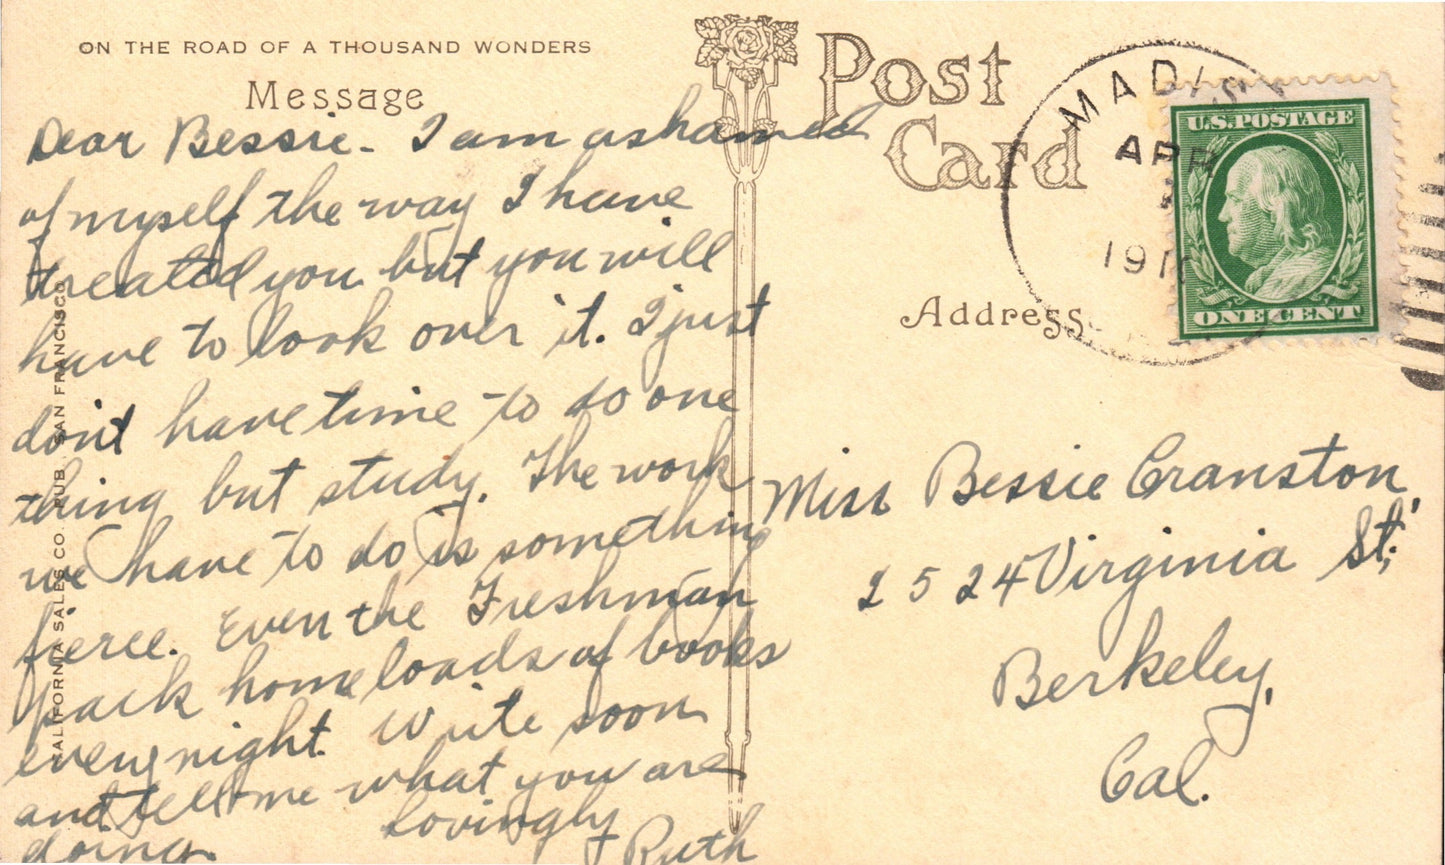 ON THE ROAD OF A THOUSAND WONDERS
Message
Dear Bessie - I am ashamed
of myself the way I have
treated you but you will
have to look over it. I just
don't have time to do one
thing but study. The work
we have to do is something
fierce. Even the Freshman
pack home loads of books
every night. Write soon
and tell me what you are
doing.
Lovingly
Ruth
CALIFORNIA SALES CO. PUB. SAN FRANCISCO
Post
Card
Address
MADIS
APR
191
U.S. POSTAGE
ONE CENT
Miss Bessie Cranston,
2524 Virginia St.,
Berkeley,
Cal.